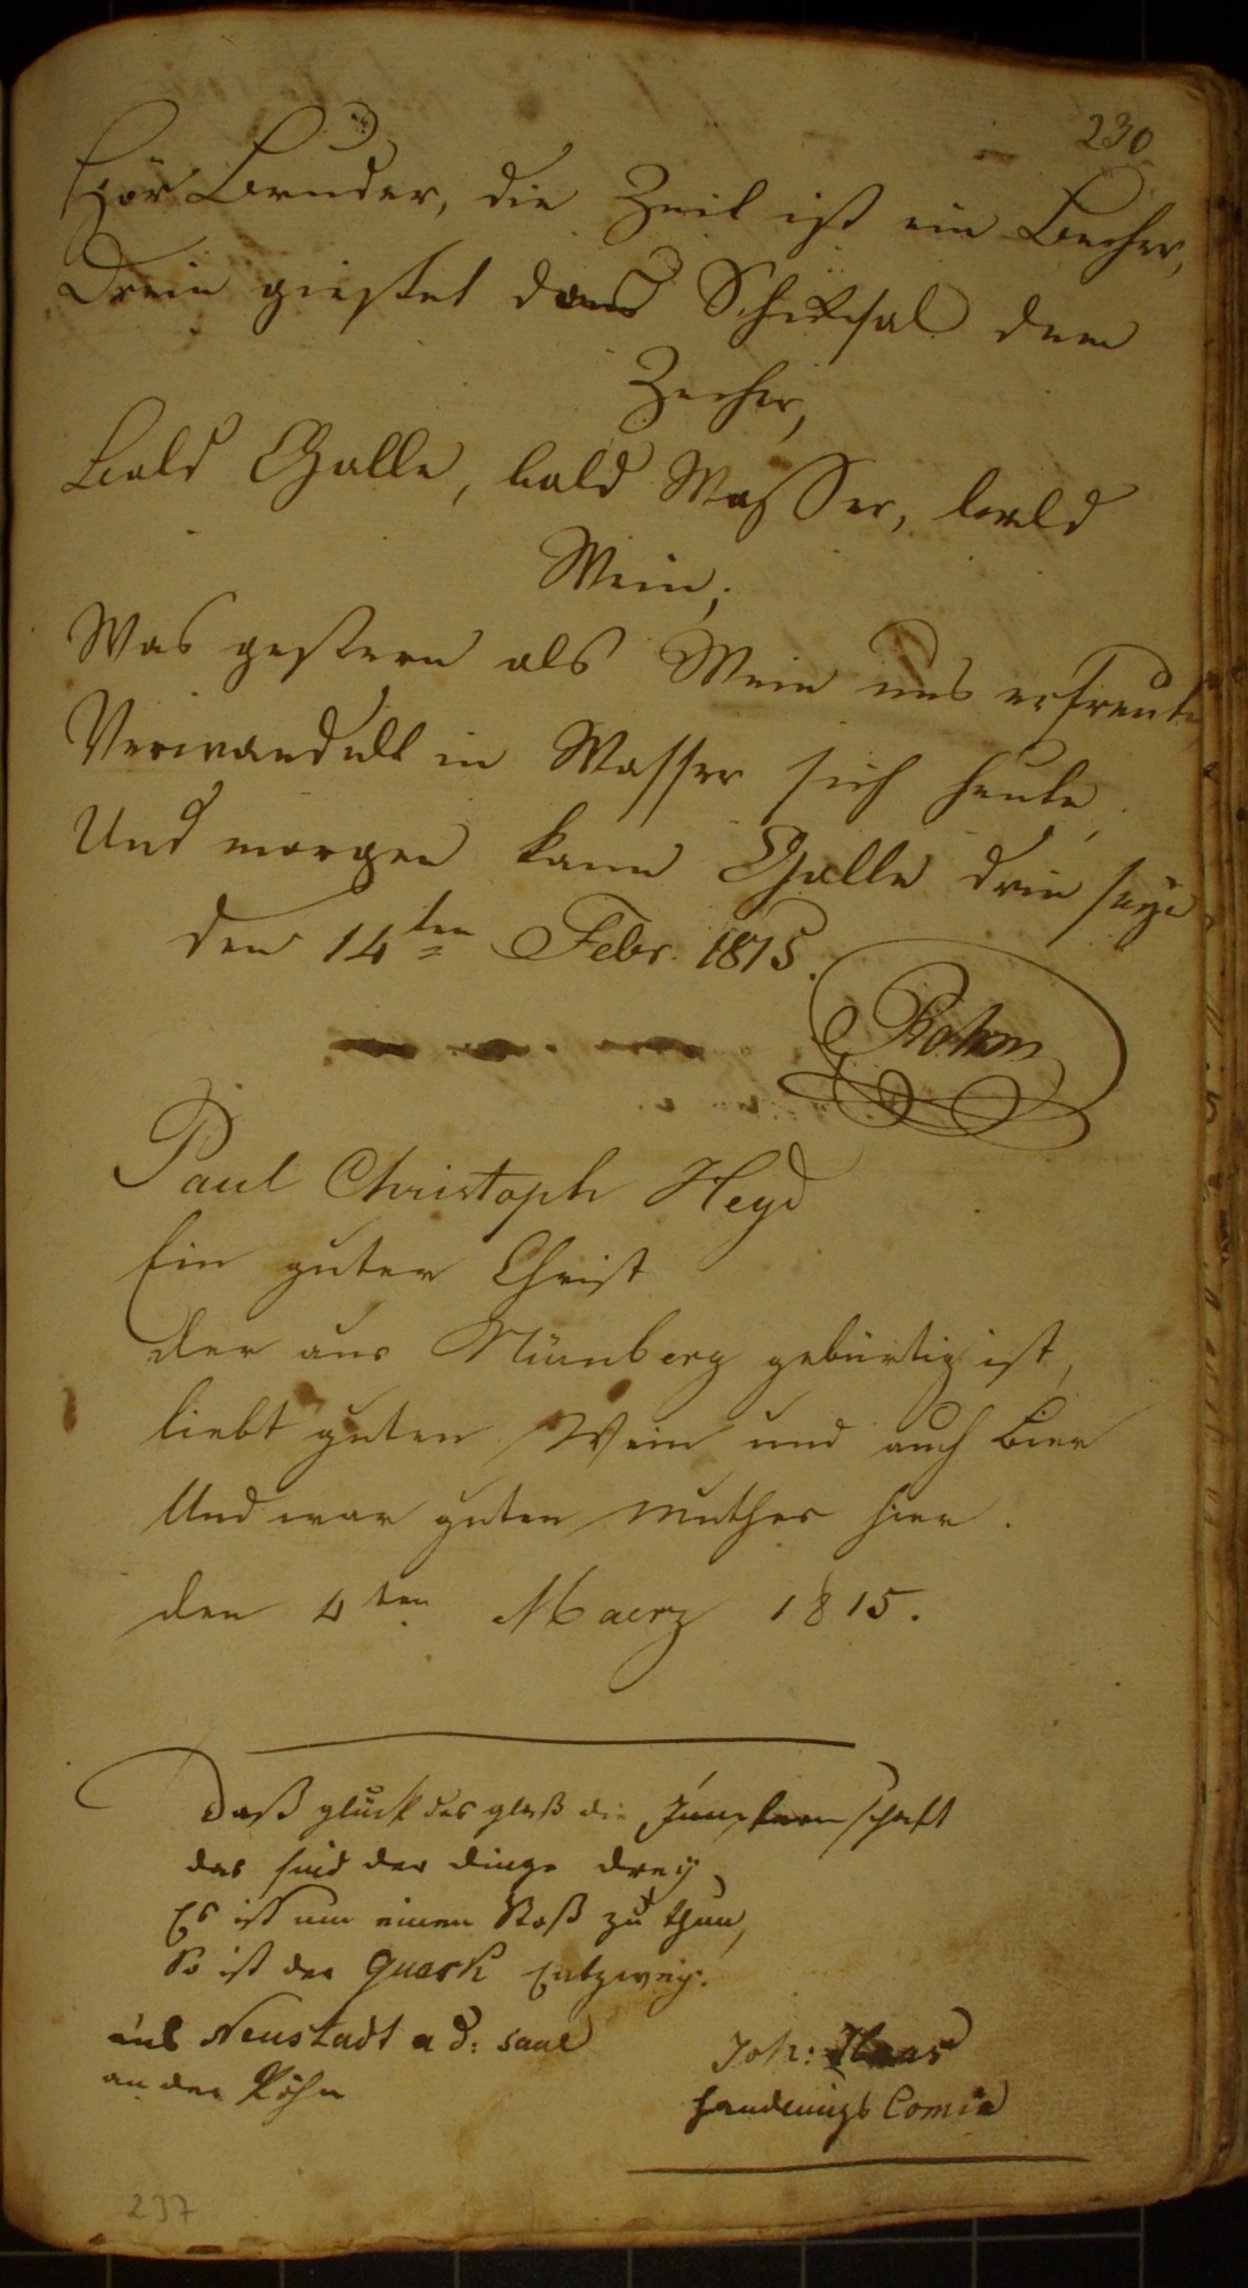 230
Hör Bruder, die Zeit ist ein Becher,
Drein giestet das Schiksal dem
Zecher,
Bald Galle, bald Wasser, bald
Wein;
Was gestern als Wein uns erfreute,
Verwandelt in Wasser sich heute,
Und morgen kann Galle drin seyn
den 14ten Febr. 1815.
Paul Christoph Heyd
Ein guter Christ
der aus Nürnberg gebürtig ist,
liebt guten Wein und auch Bier
Und war guten Muthes hier.
den 4ten Maerz 1815.
Daß glück das glaß die Jungfernschaft
das sind der dinge drey,
Es ist um einen Stoß zu thun,
So ist der Quark Entzwey.
aus Neustadt a d: Saal
an der Röhn
Joh: Haas
Handlungs Comis
237